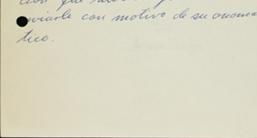 que
enviarle con motivo de su onomás
tico.